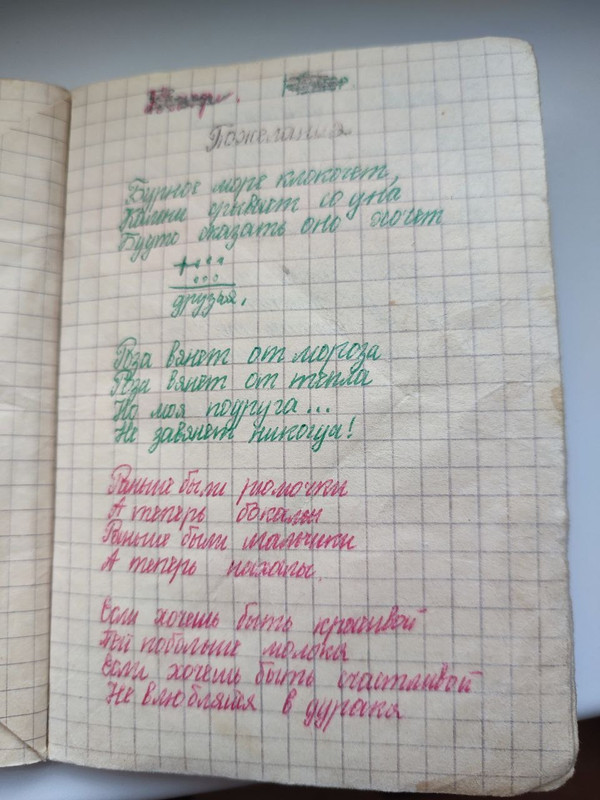 Пожелания
Бурное море клокочет,
Камни срывает со дна
Будто сказать оно хочет
друзья.
Роза вянет от мороза
Роза вянет от тепла
Но моя подруга...
Не завянет никогда!
Раньше были рюмочки
А теперь бокалы
Раньше были мальчики
А теперь нахалы.
Если хочешь быть красивой
Пей побольше молока
Если хочешь быть счастливой
Не влюбляйся в дурака